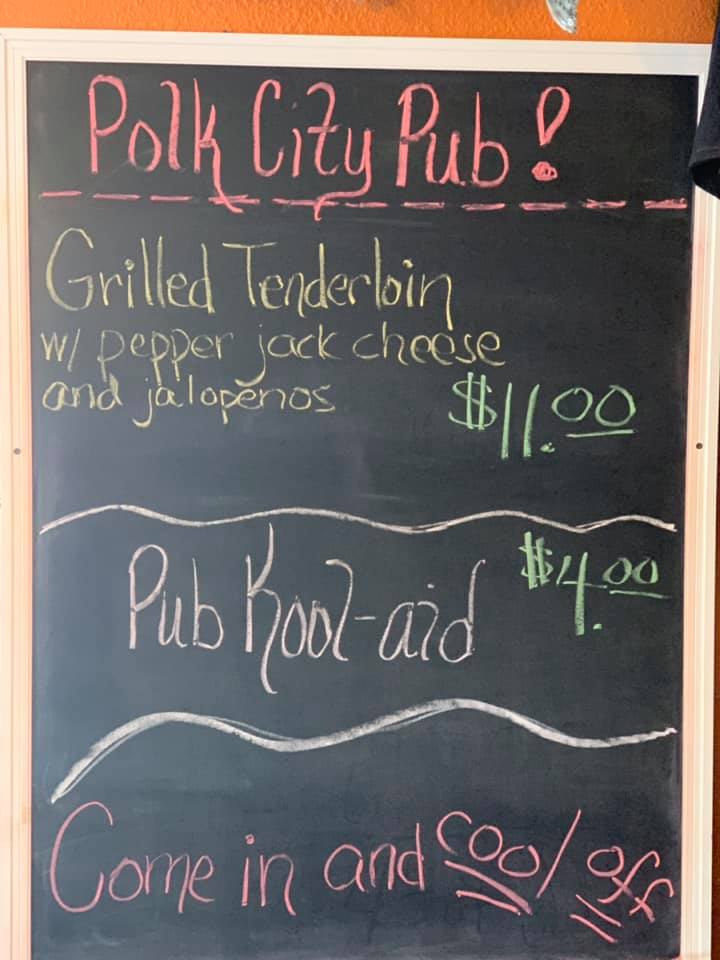 Polk City Pub!
Grilled Tenderloin
w/ pepper jack cheese
and jalopenos $11.00
Pub Kool-aid $4.00
Come in and cool off